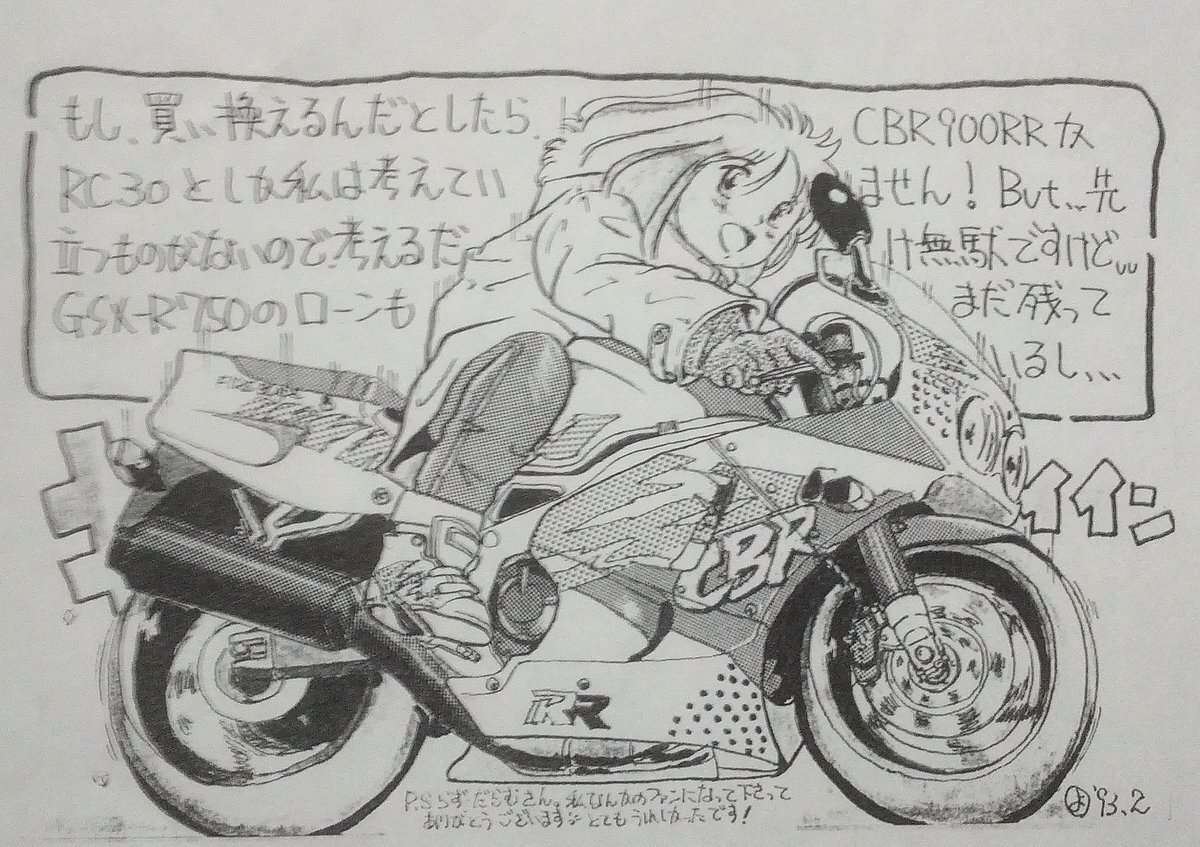 もし、買い換えるんだとしたら、CBR900RRか
RC30としか私は考えていません！But...先
立つものがないので考えるだけ無駄ですけど...
GSX-R750のローンもまだ残って
いるし、、、
FIRE
CBR
RR
イイン
P.S らずだらむさん。私なんかのファンになって下さって
ありがとうございます とてもうれしかったです！
よ '93.2